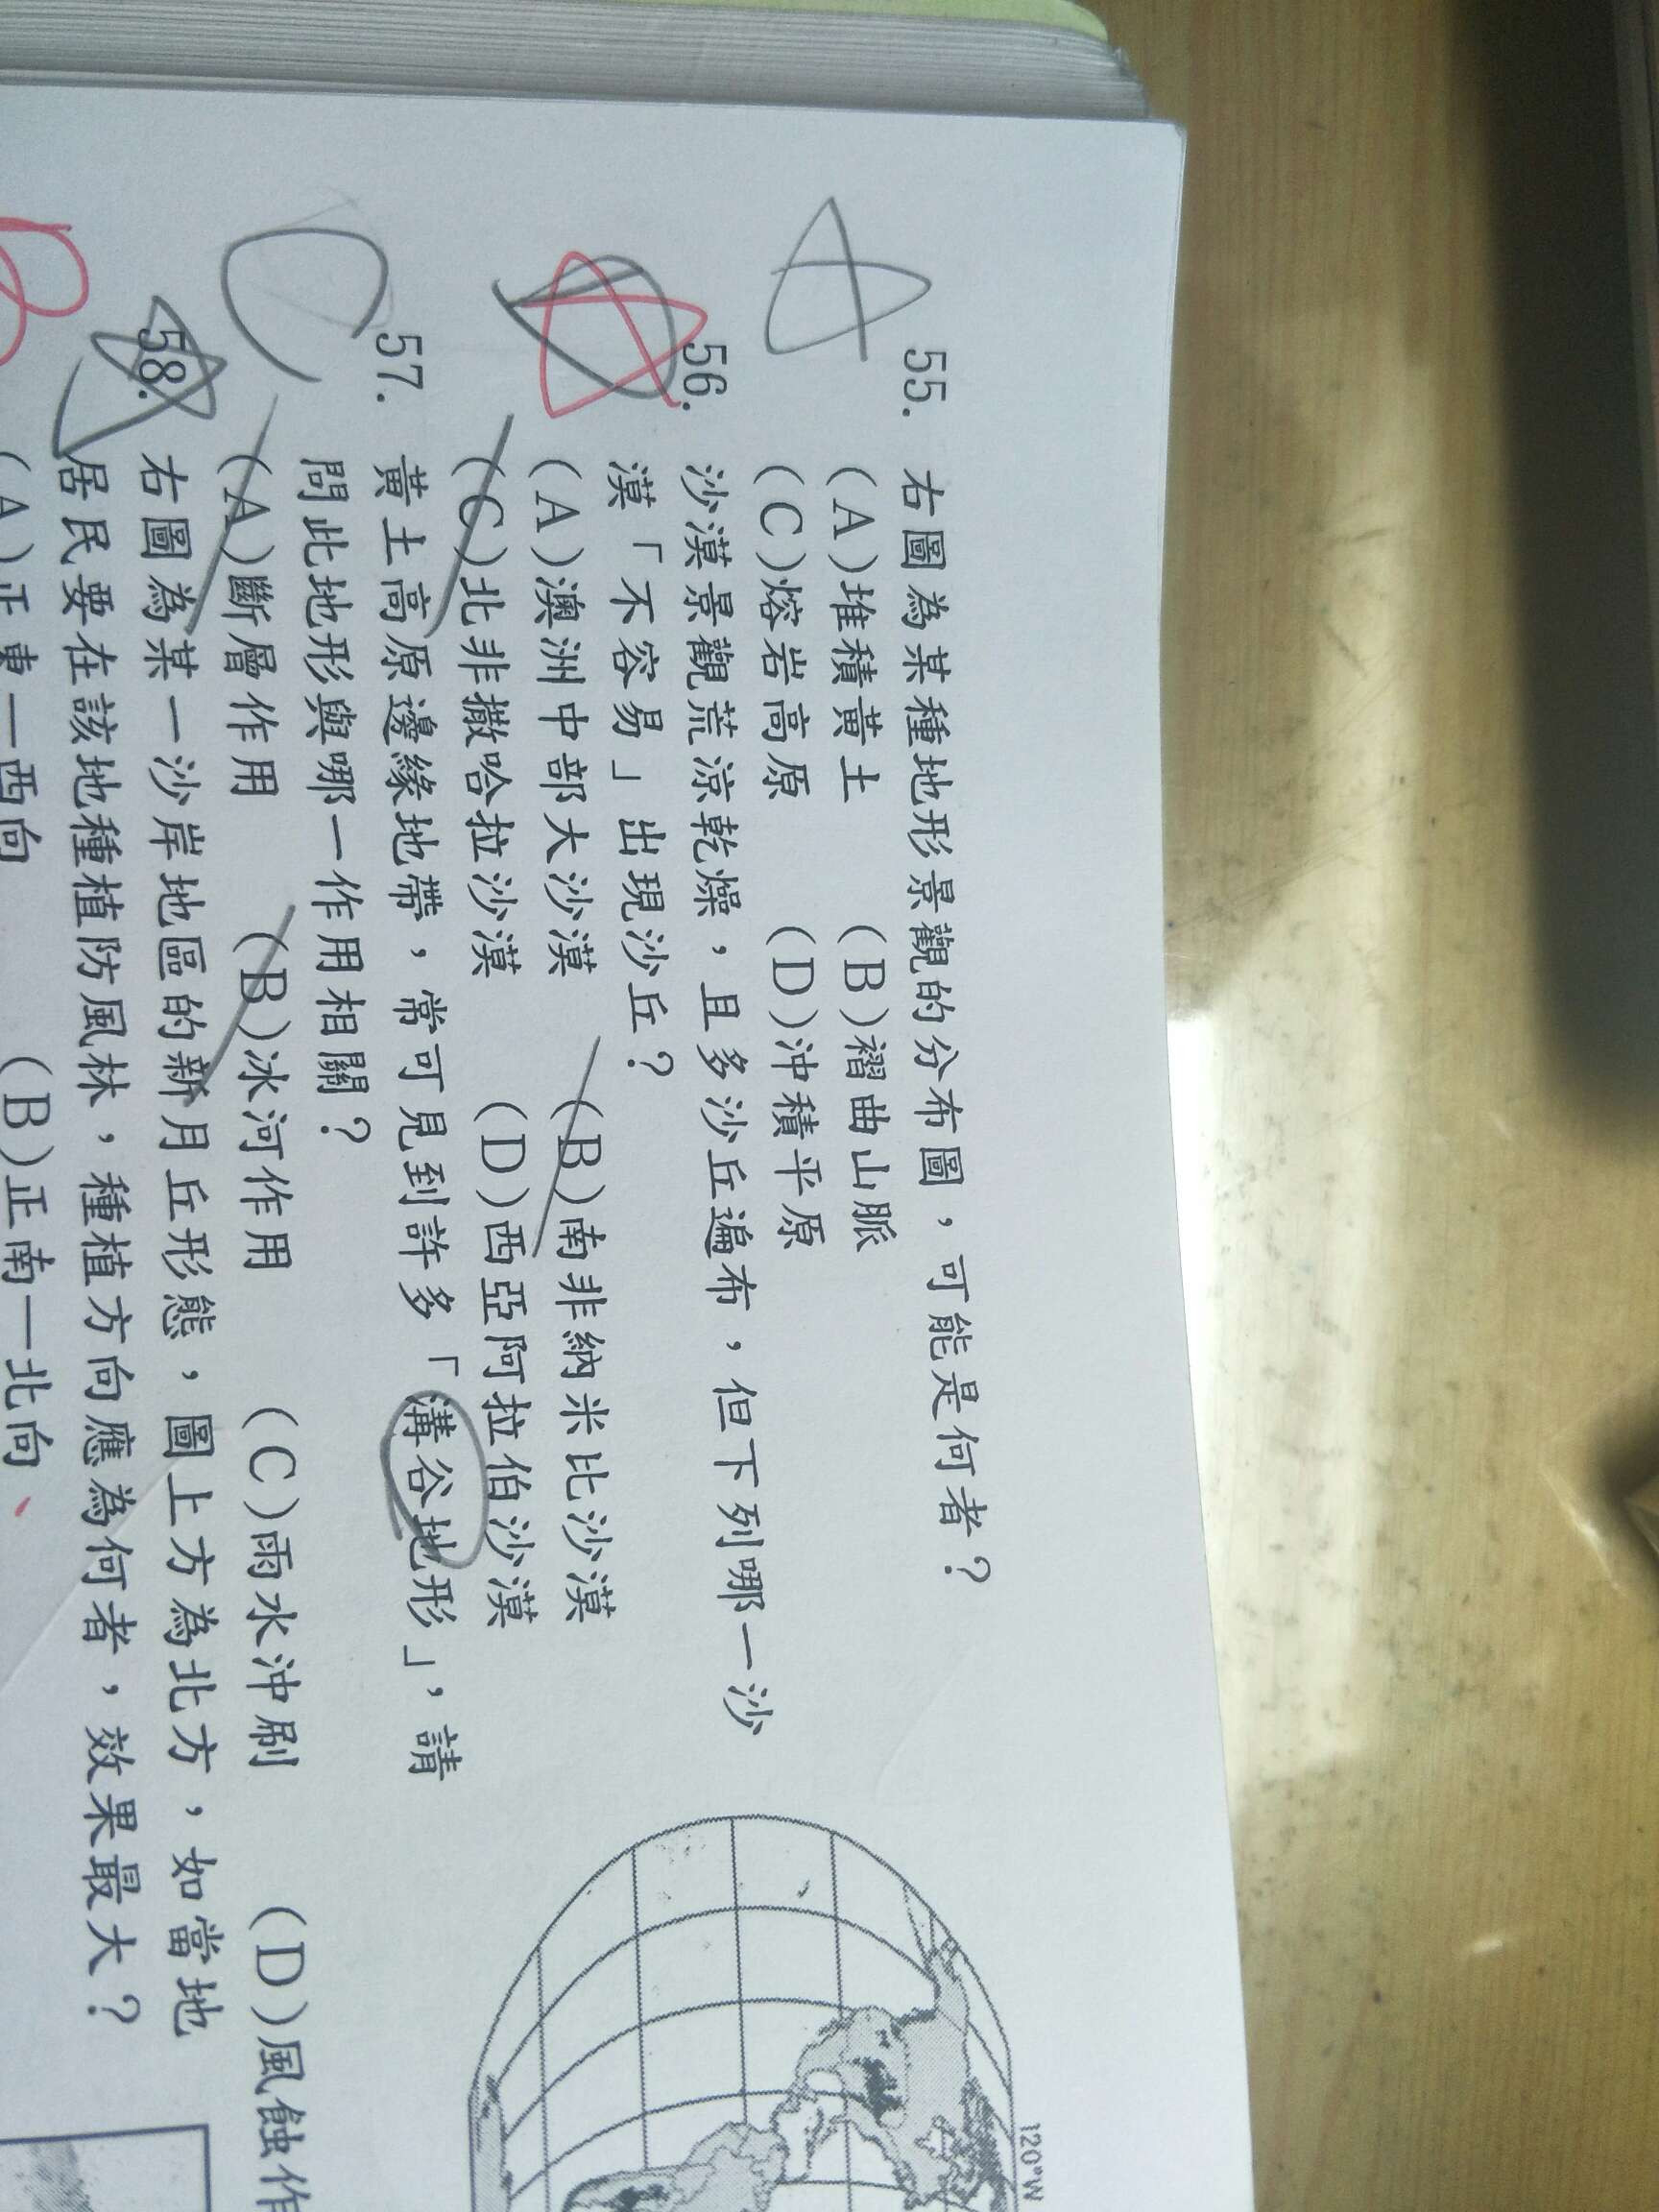 A
55. 右圖為某種地形景觀的分布圖，可能是何者？
(A)堆積黃土 (B)褶曲山脈
(C)熔岩高原 (D)沖積平原
A
56. 沙漠景觀荒涼乾燥，且多沙丘遍布，但下列哪一沙
漠「不容易」出現沙丘？
(A)澳洲中部大沙漠 (B)南非納米比沙漠
(C)北非撒哈拉沙漠 (D)西亞阿拉伯沙漠
C
57. 黃土高原邊緣地帶，常可見到許多「溝谷地形」，請
問此地形與哪一作用相關？
(A)斷層作用 (B)冰河作用 (C)雨水沖刷 (D)風蝕作
58. 右圖為某一沙岸地區的新月丘形態，圖上方為北方，如當地
居民要在該地種植防風林，種植方向應為何者，效果最大？
(A)正東—西向 (B)正南—北向
120°W